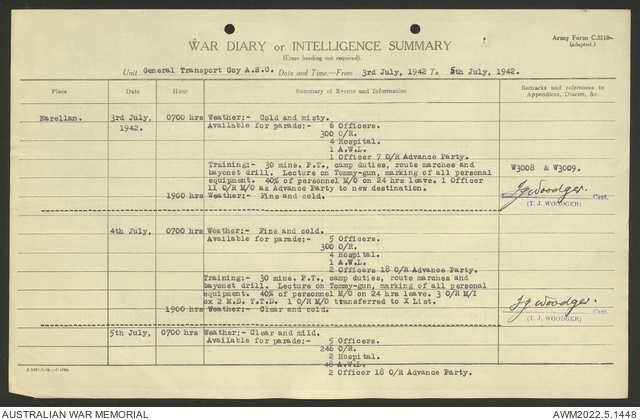 Army Form C.2118
(adapted.)
WAR DIARY or INTELLIGENCE SUMMARY
(Erase heading not required).
Unit General Transport Coy A.S.C. Date and Time.—From 3rd July, 1942 To 5th July, 1942.
Place Date Hour Summary of Events and Information Remarks and references to
Appendices, Diaries, &c.
Narellan. 3rd July, 0700 hrs Weather:- Cold and misty.
1942. Available for parade:- 6 Officers.
300 O/R.
4 Hospital.
1 A.W.L.
1 Officer 7 O/R Advance Party.
Training:- 30 mins. P.T., camp duties, route marches and W3008 & W3009.
bayonet drill. Lecture on Tommy-gun, marking of all personal
equipment. 40% of personnel M/O on 24 hrs leave. 1 Officer
11 O/R M/O as Advance Party to new destination. TJ Woodger. Capt.
1900 hrs Weather:- Fine and cold. (T. J. WOODGER)
4th July, 0700 hrs Weather:- Fine and cold.
Available for parade:- 5 Officers.
300 O/R.
4 Hospital.
1 A.W.L.
2 Officers 18 O/R Advance Party.
Training:- 30 mins. P.T., camp duties, route marches and
bayonet drill. Lecture on Tommy-gun, marking of all personal
equipment. 40% of personnel M/O on 24 hrs leave. 3 O/R M/I
ex 2 M.D. T.T.D. 1 O/R M/O transferred to X List. TJ Woodger. Capt.
1900 hrs Weather:- Clear and cold. (T. J. WOODGER)
5th July, 0700 hrs Weather:- Clear and mild.
Available for parade:- 5 Officers.
246 O/R.
2 Hospital.
48 A.W.L.
2 Officer 18 O/R Advance Party.
AUSTRALIAN WAR MEMORIAL AWM2022.5.1448